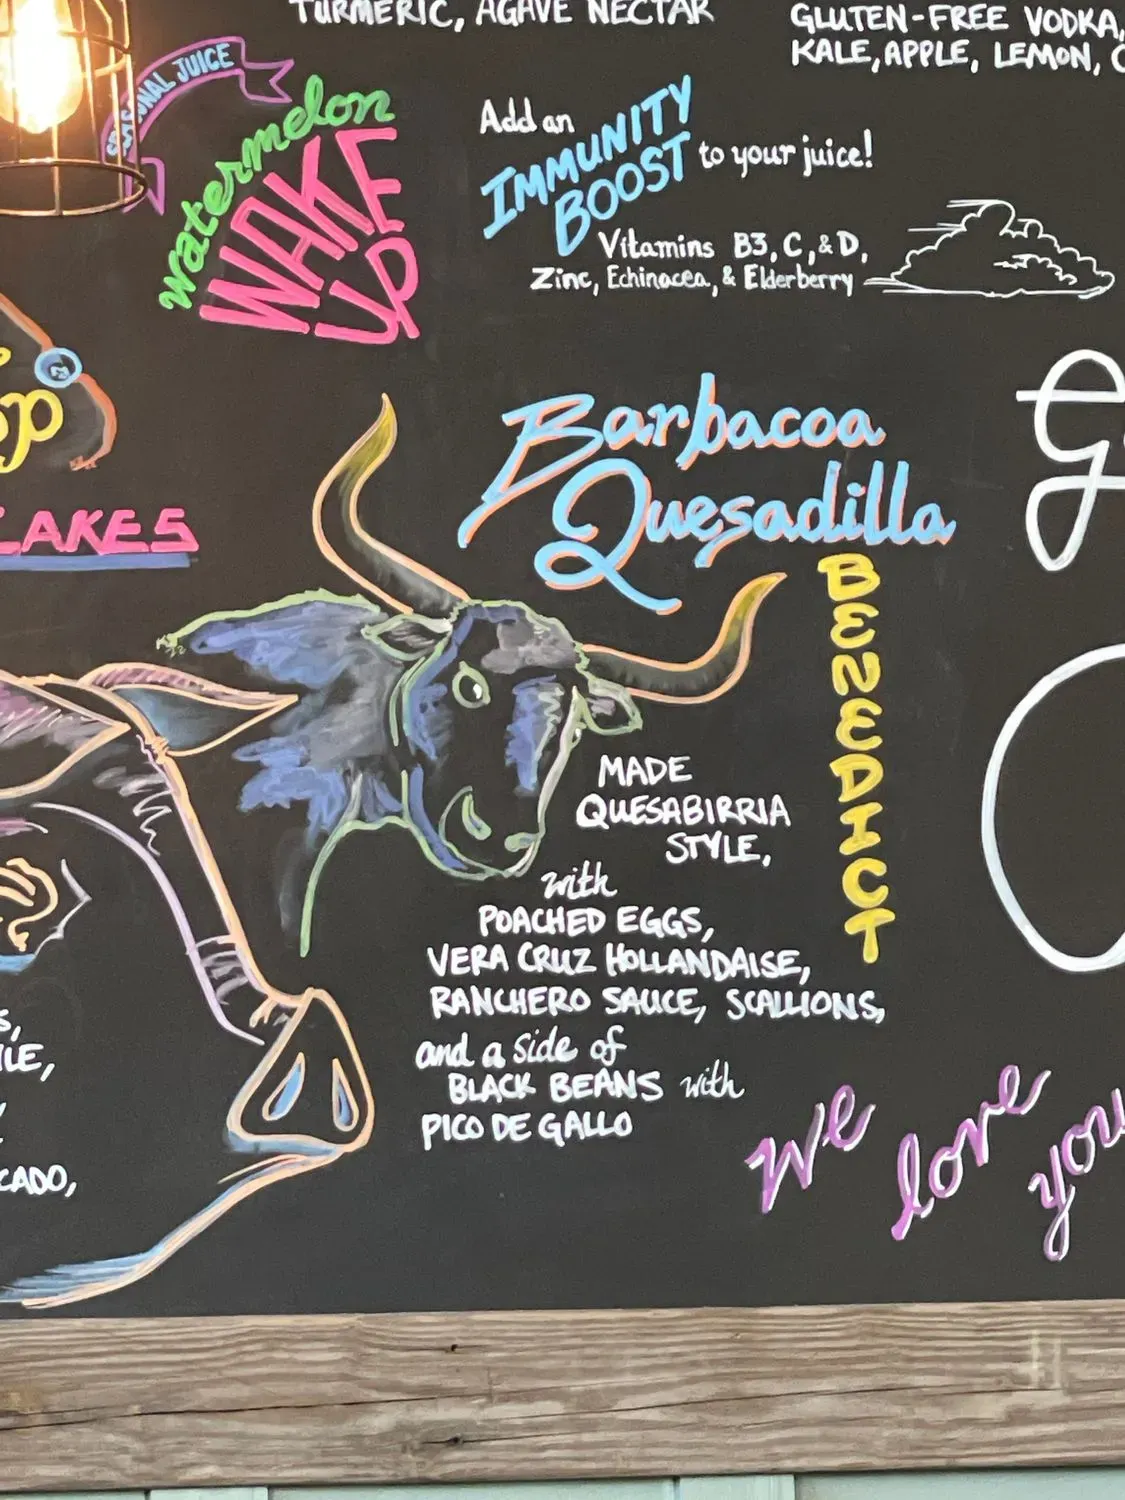 TURMERIC, AGAVE NECTAR
GLUTEN-FREE VODKA,
KALE, APPLE, LEMON,
JUICE
watermelon
WAKE
UP
Add an
IMMUNITY
BOOST
to your juice!
Vitamins B3, C, & D,
Zinc, Echinacea, & Elderberry
CAKES
Barbacoa
Quesadilla
BENEDICT
MADE
QUESABIRRIA
STYLE,
with
POACHED EGGS,
VERA CRUZ HOLLANDAISE,
RANCHERO SAUCE, SCALLIONS,
and a side of
BLACK BEANS with
PICO DE GALLO
we
love
you